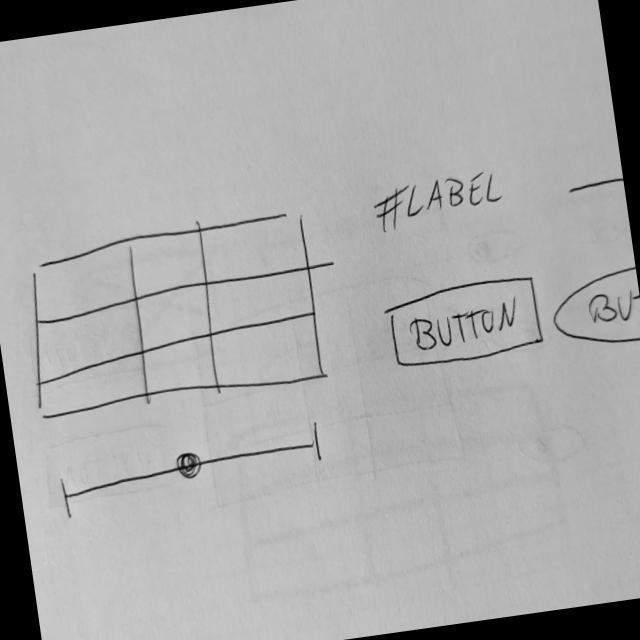 #LABEL
BUTTON
BU